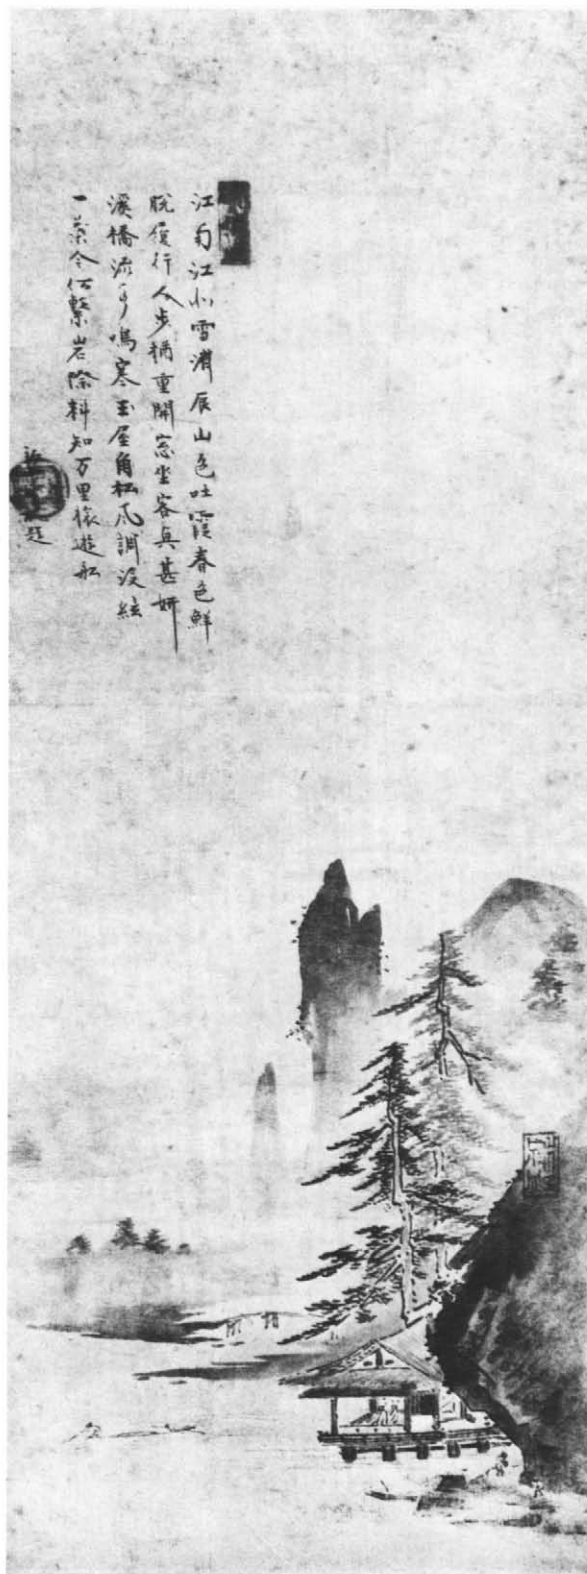 江南江北雪消辰山色吐霞春色鮮
脱屐行人步猶重開窓坐客興甚妍
溪橋流水鳴寒玉屋角松風調没絃
一葉今何繋岩際料知万里遊舡
題